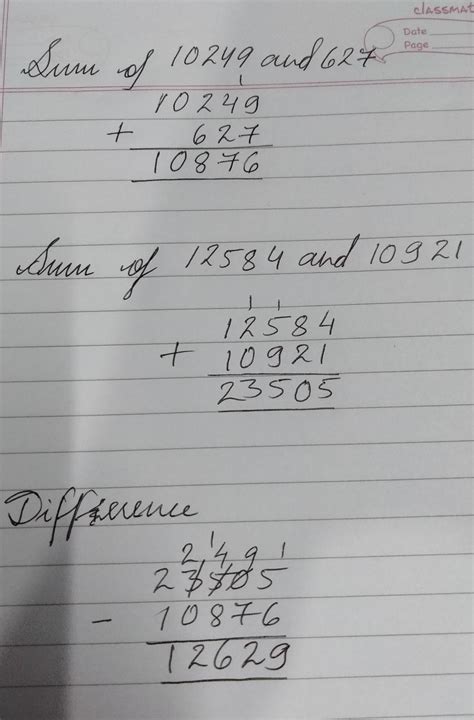 classmat
Date
Page
Sum of 10249 and 627
1
10249
+ 627
10876
Sum of 12584 and 10921
1 1
12584
+ 10921
23505
Difference
2 1 4 9 1
23505
- 10876
12629